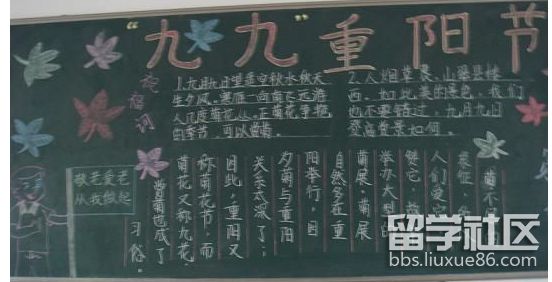 “九九”重阳节
1.九月九日望遥空秋水秋天
生夕风。寒雁一向南飞远游
人几度菊花丛。正菊花争艳
的季节，可以赏菊。
2.人烟
西。如此美的景色，我们
也不要错过，九月九日
登高赏景如何。
菊不
象征
人们爱
举办大型的
菊展，菊展
自然多在重
阳举行，因
夕菊与重阳
关系太深了；
因此，重阳又
称菊花节，而
菊花又称九花。
赏菊也成了
习俗。
敬老爱老
从我做起
留学社区
bbs.liuxue86.com